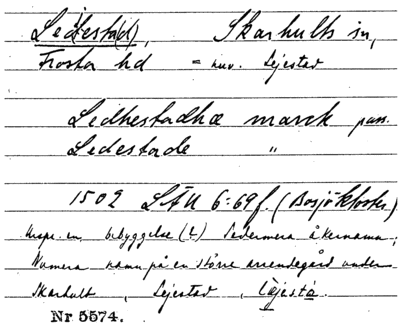 Ledesta(d), Skarhults sn,
Frosta hd = nuv. Lejestad
Ledhestadhæ marck pass.
Ledestade "
1502 LÄU 6:69f. (Bosjökloster)
Urspr. en bebyggelse (?) Sedermera åkernamn;
Numera namn på en större arrendegård under
Skarhult, Lejestad, läjesta.
Nr 5574.